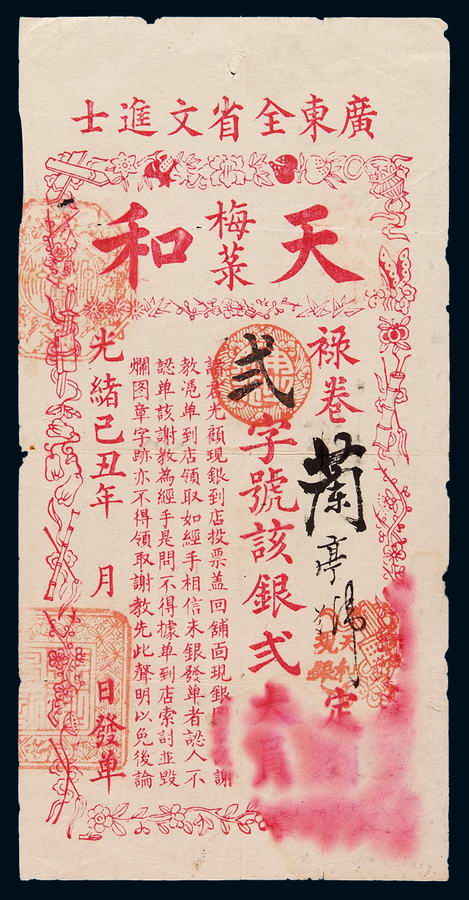 廣東全省文進士
天和
梅菜
祿卷蘭亭
定
弍字號該銀弍大員
光顧現銀到店投票盖回舖面現銀
謝
教憑單到店領取如經手相信未銀發單者認人不
認单該謝教為經手是問不得據单到店索討並毀
爛图章字跡亦不得領取謝教先此聲明以免後論
光緒己丑年 月 日發单
現銀